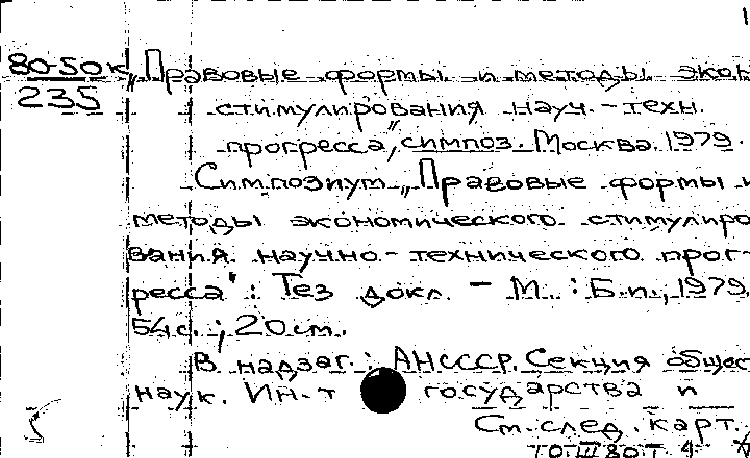 80-50к „Правовые формы и методы экон
235 стимулирования науч.-техн.
прогресса", симпоз. Москва. 1979.
Симпозиум „Правовые формы и
методы экономического стимулиро
вания научно-технического прог-
ресса": Тез докл. - М. : Б.и., 1979.
54 с. ; 20 см.
В надзаг.: АН СССР. Секция общес
наук. Ин-т государства и
См. след. карт.